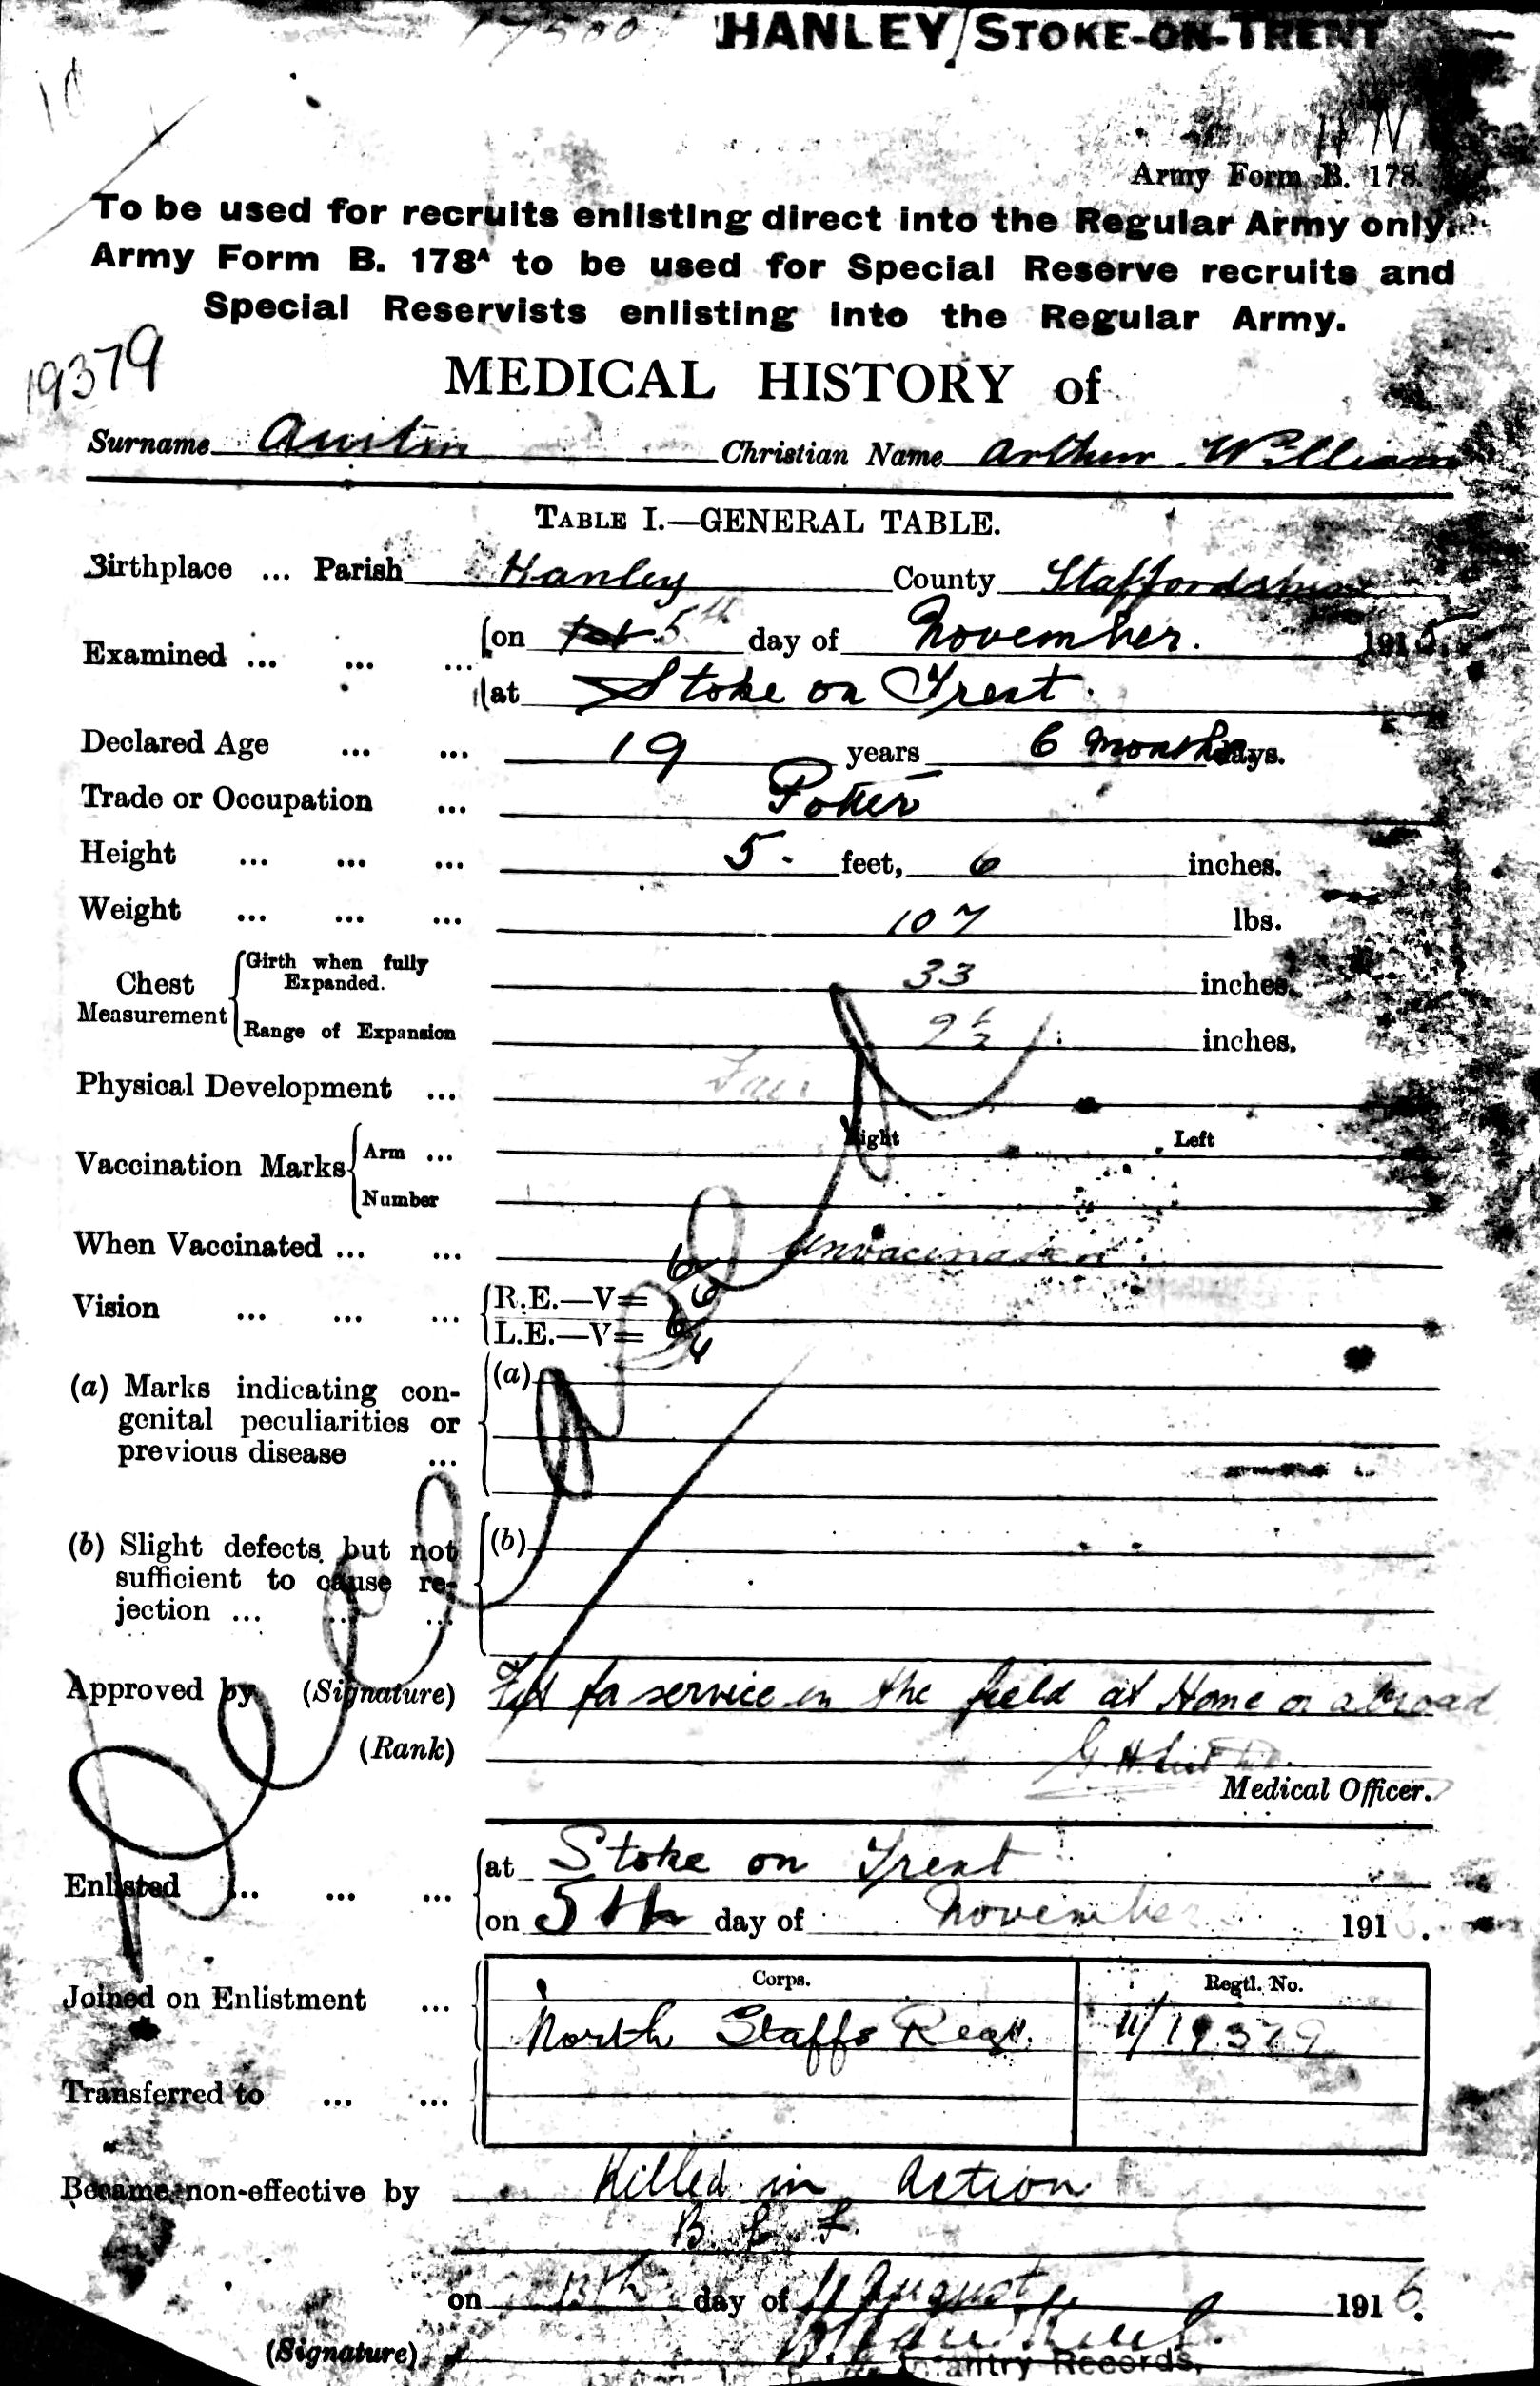 HANLEY/STOKE-ON-TRENT
Army Form B. 178.
To be used for recruits enlisting direct into the Regular Army only.
Army Form B. 178A to be used for Special Reserve recruits and
Special Reservists enlisting into the Regular Army.
19379
MEDICAL HISTORY of
Surname Austin Christian Name Arthur William
TABLE I.—GENERAL TABLE.
Birthplace ... Parish Hanley County Staffordshire
Examined ... ... ... on 5th day of November. 1915
at Stoke on Trent.
Declared Age ... ... 19 years 6 months days.
Trade or Occupation ... Potter
Height ... ... ... 5 feet, 6 inches.
Weight ... ... ... 107 lbs.
Chest Measurement Girth when fully Expanded. 33 inches.
Range of Expansion 2½ inches.
Physical Development ... Fair
Right Left
Vaccination Marks Arm ...
Number
When Vaccinated ... ... Unvacinated
Vision ... ... ... R.E.—V= 6/6
L.E.—V= 6/
(a) Marks indicating con- (a)
genital peculiarities or
previous disease ...
(b) Slight defects but not (b)
sufficient to cause re-
jection ... ... ...
Deceased
Approved by (Signature) Fit for service in the field at Home or abroad
(Rank) G. H.
Medical Officer.
Enlisted ... ... ... at Stoke on Trent
on 5th day of November 191 .
Corps. Regtl. No.
Joined on Enlistment ... North Staffs Regt. 11/19379
Transferred to ... ...
Became non-effective by Killed in Action
B. E. F.
on 13th day of August 1916.
(Signature)
Infantry Records,